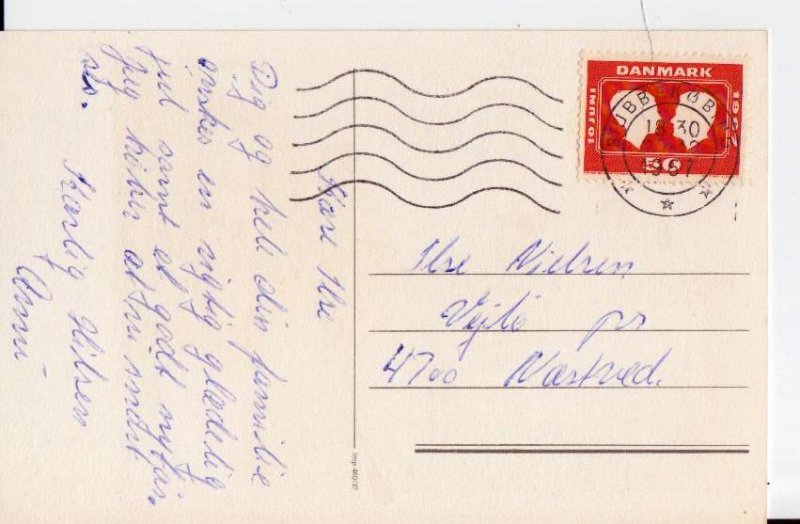 Kære Ilse
Dig og hele din familie
ønskes en rigtig glædelig
jul samt et godt nytår.
Jeg håber at du snart
Kærlig Hilsen
Anni
DANMARK
10 JUNI
1967
STUBBEKØBING
18 30
1967
Ilse Nielsen
Vejlø pr
4700 Næstved.
Imp